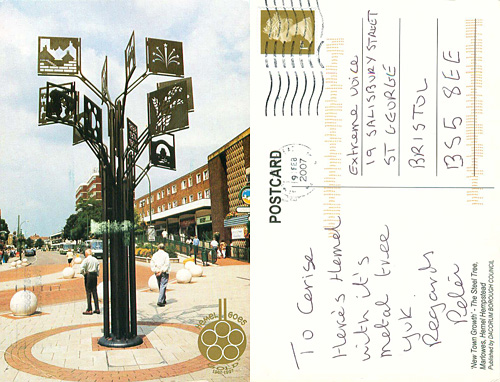 Hemel
GOLD
1947-1997
POSTCARD
FEB
2007
To Cerise
Here's Hemel
with it's
metal tree
yuk.
Regards
Peter
Extreme Voice
19 SALISBURY STREET
ST GEORGE
BRISTOL
BS5 8EE
'New Town Growth' - The Steel Tree,
Marlowes, Hemel Hempstead
Published by DACORUM BOROUGH COUNCIL